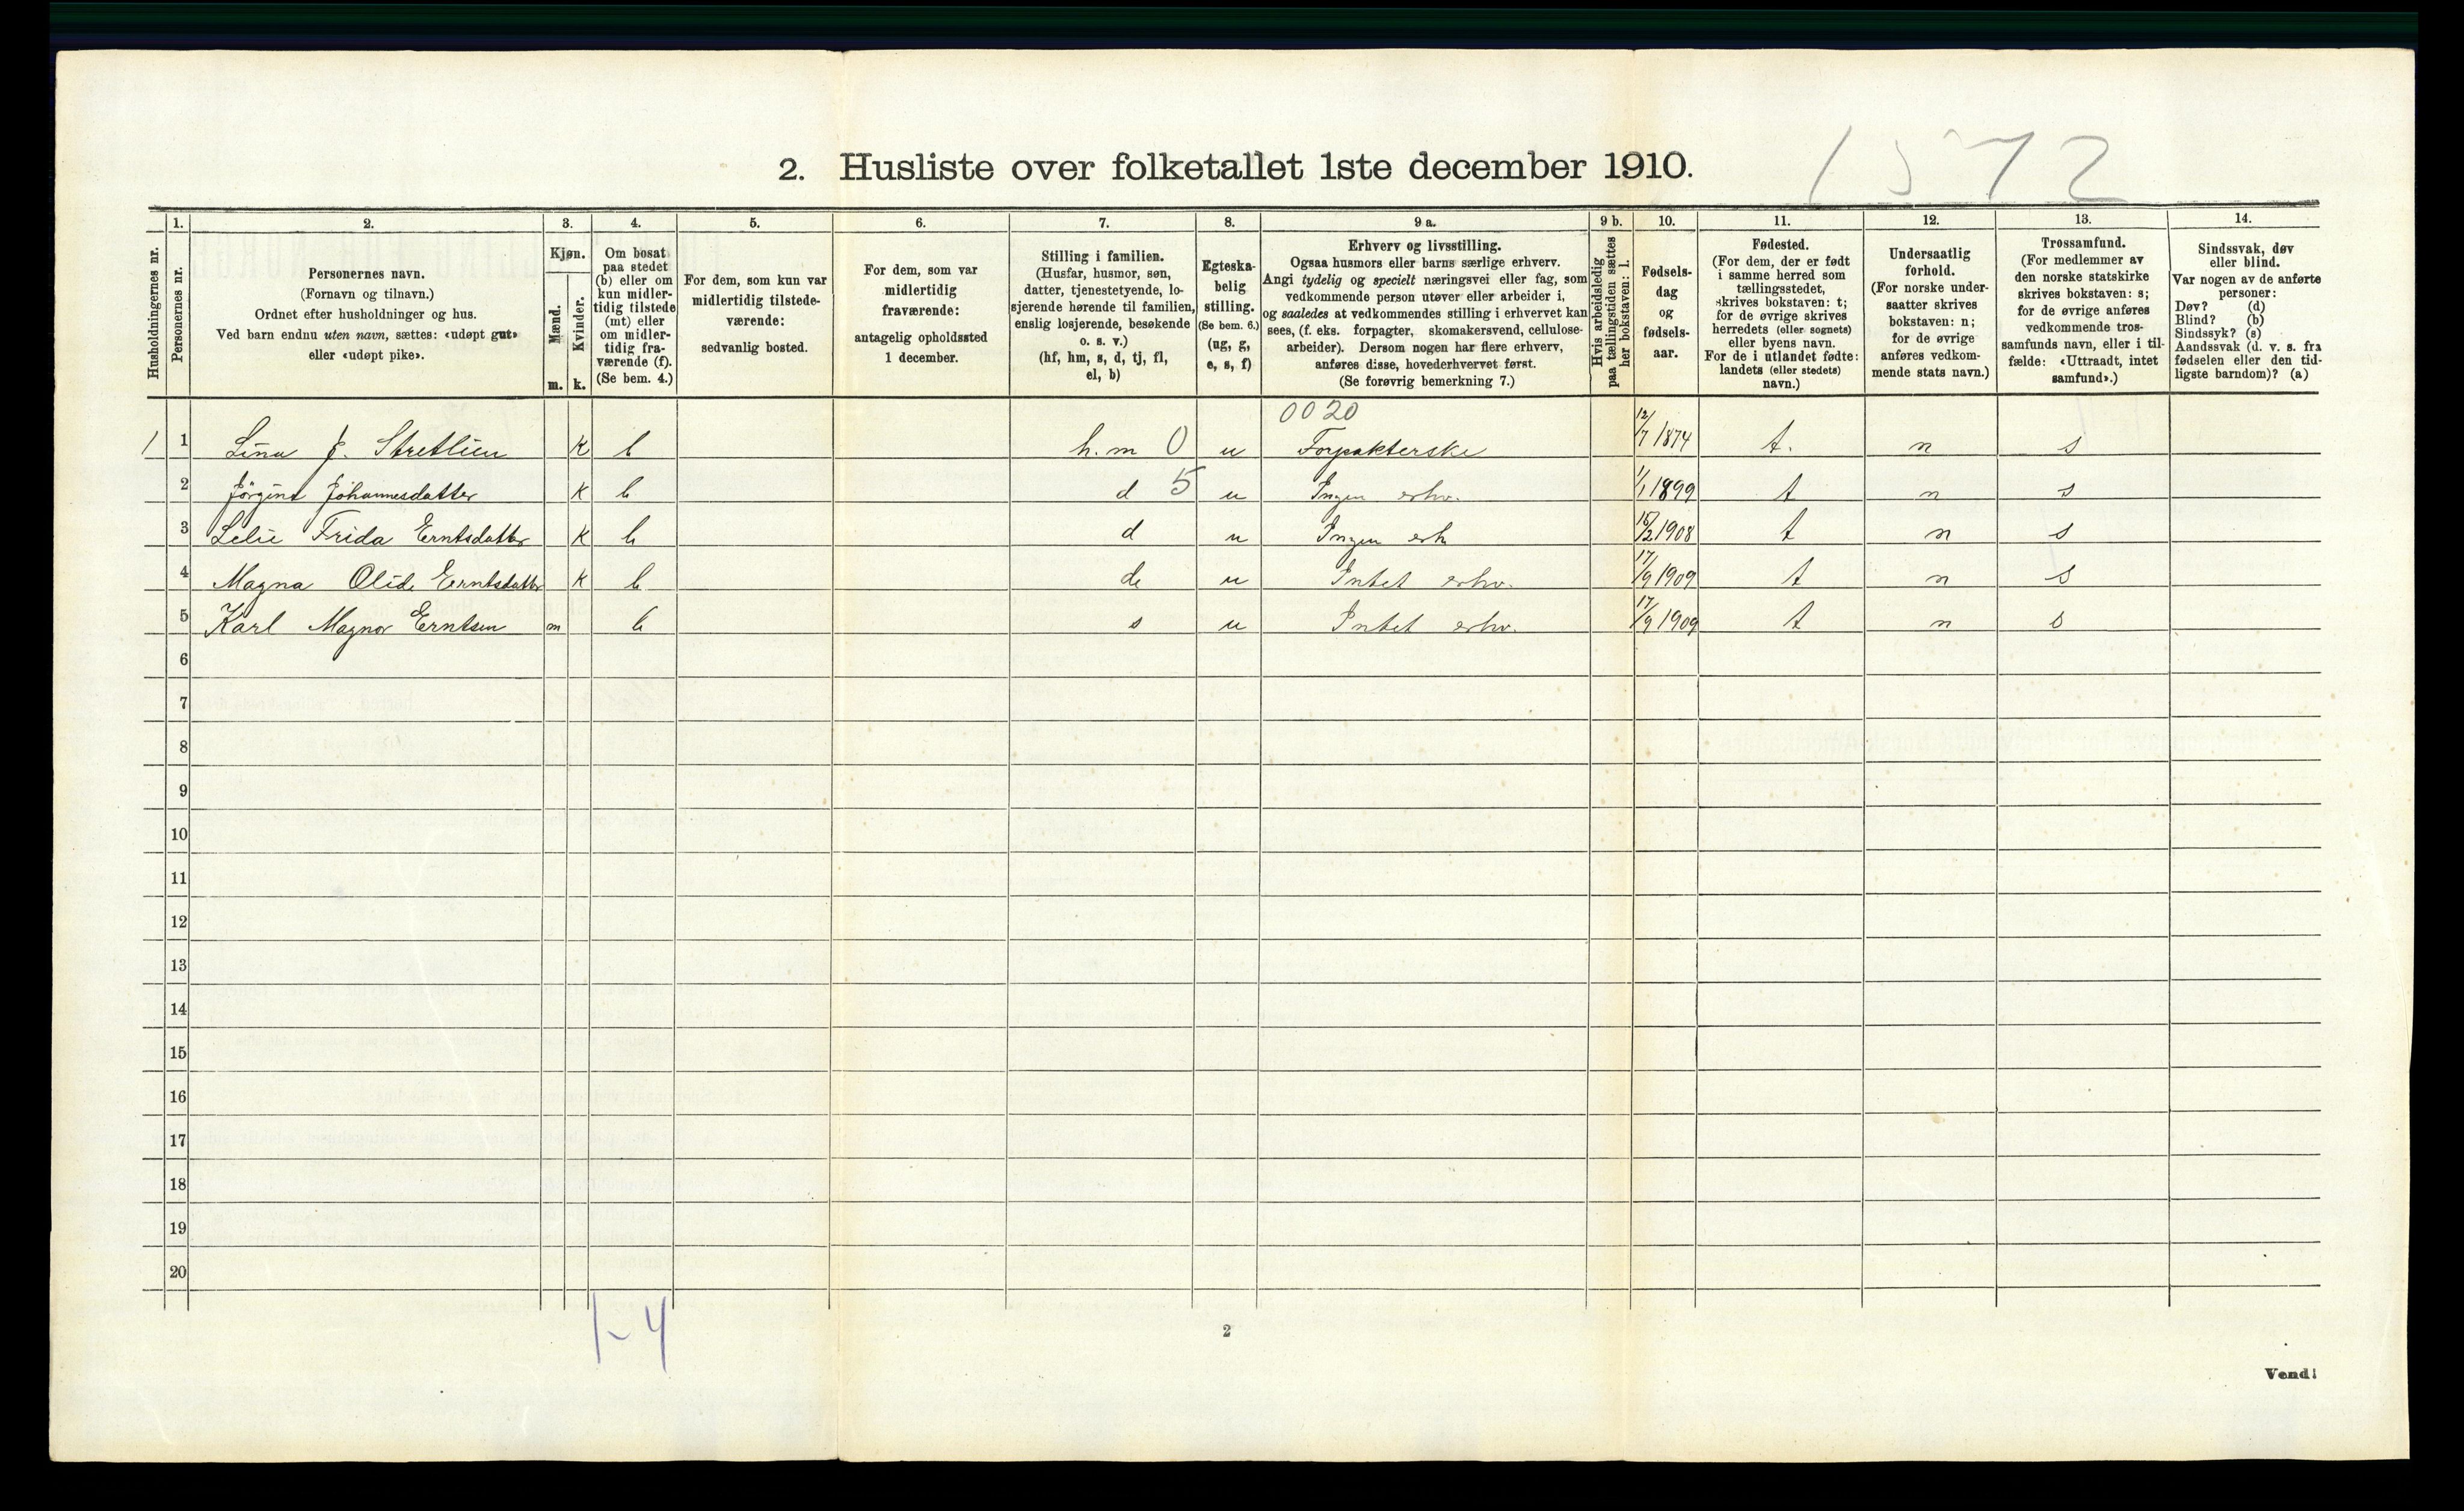 1572
2. Husliste over folketallet 1ste december 1910.
Husholdningernes nr.
1. Personernes nr.
2. Personernes navn.
(Fornavn og tilnavn.)
Ordnet efter husholdninger og hus.
Ved barn endnu uten navn, sættes: «udøpt gut»
eller «udøpt pike».
3. Kjøn.
Mænd. m.
Kvinder. k.
4. Om bosat
paa stedet
(b) eller om
kun midler-
tidig tilstede
(mt) eller
om midler-
tidig fra-
værende (f).
(Se bem. 4.)
5. For dem, som kun var
midlertidig tilstede-
værende:
sedvanlig bosted.
6. For dem, som var
midlertidig
fraværende:
antagelig opholdssted
1 december.
7. Stilling i familien.
(Husfar, husmor, søn,
datter, tjenestetyende, lo-
sjerende hørende til familien,
enslig losjerende, besøkende
o. s. v.)
(hf, hm, s, d, tj, fl,
el, b)
8. Egteska-
belig
stilling.
(Se bem. 6.)
(ug, g,
e, s, f)
9 a. Erhverv og livsstilling.
Ogsaa husmors eller barns særlige erhverv.
Angi tydelig og specielt næringsvei eller fag, som
vedkommende person utøver eller arbeider i,
og saaledes at vedkommendes stilling i erhvervet kan
sees, (f. eks. forpagter, skomakersvend, cellulose-
arbeider). Dersom nogen har flere erhverv,
anføres disse, hovederhvervet først.
(Se forøvrig bemerkning 7.)
9 b. Hvis arbeidsledig
paa tællingstiden sættes
her bokstaven: l.
10. Fødsels-
dag
og
fødsels-
aar.
11. Fødested.
(For dem, der er født
i samme herred som
tællingsstedet,
skrives bokstaven: t;
for de øvrige skrives
herredets (eller sognets)
eller byens navn.
For de i utlandet fødte:
landets (eller stedets)
navn.)
12. Undersaatlig
forhold.
(For norske under-
saatter skrives
bokstaven: n;
for de øvrige
anføres vedkom-
mende stats navn.)
13. Trossamfund.
(For medlemmer av
den norske statskirke
skrives bokstaven: s;
for de øvrige anføres
vedkommende tros-
samfunds navn, eller i til-
fælde: «Uttraadt, intet
samfund».)
14. Sindssvak, døv
eller blind.
Var nogen av de anførte
personer:
Døv? (d)
Blind? (b)
Sindssyk? (s)
Aandssvak (d. v. s. fra
fødselen eller den tid-
ligste barndom)? (a)
0020
1 1 Lina J. Stretlien K b h.m 0 u Forpakterske 12/7 1874 t. n s
2 Jörgine Johannesdatter K b d 5 u Ingen erhv. 1/1 1899 t n s
3 Lelie Frida Erntsdatter K b d u Ingen erh 15/2 1908 t n s
4 Magna Olide Erntsdatter K b de u Intet erhv. 17/9 1909 t n s
5 Karl Magnor Erntsen m b s u Intet erhv. 17/9 1909 t n s
6
7
8
9
10
11
12
13
14
15
16
17
18
19
20
1-4
2
Vend!